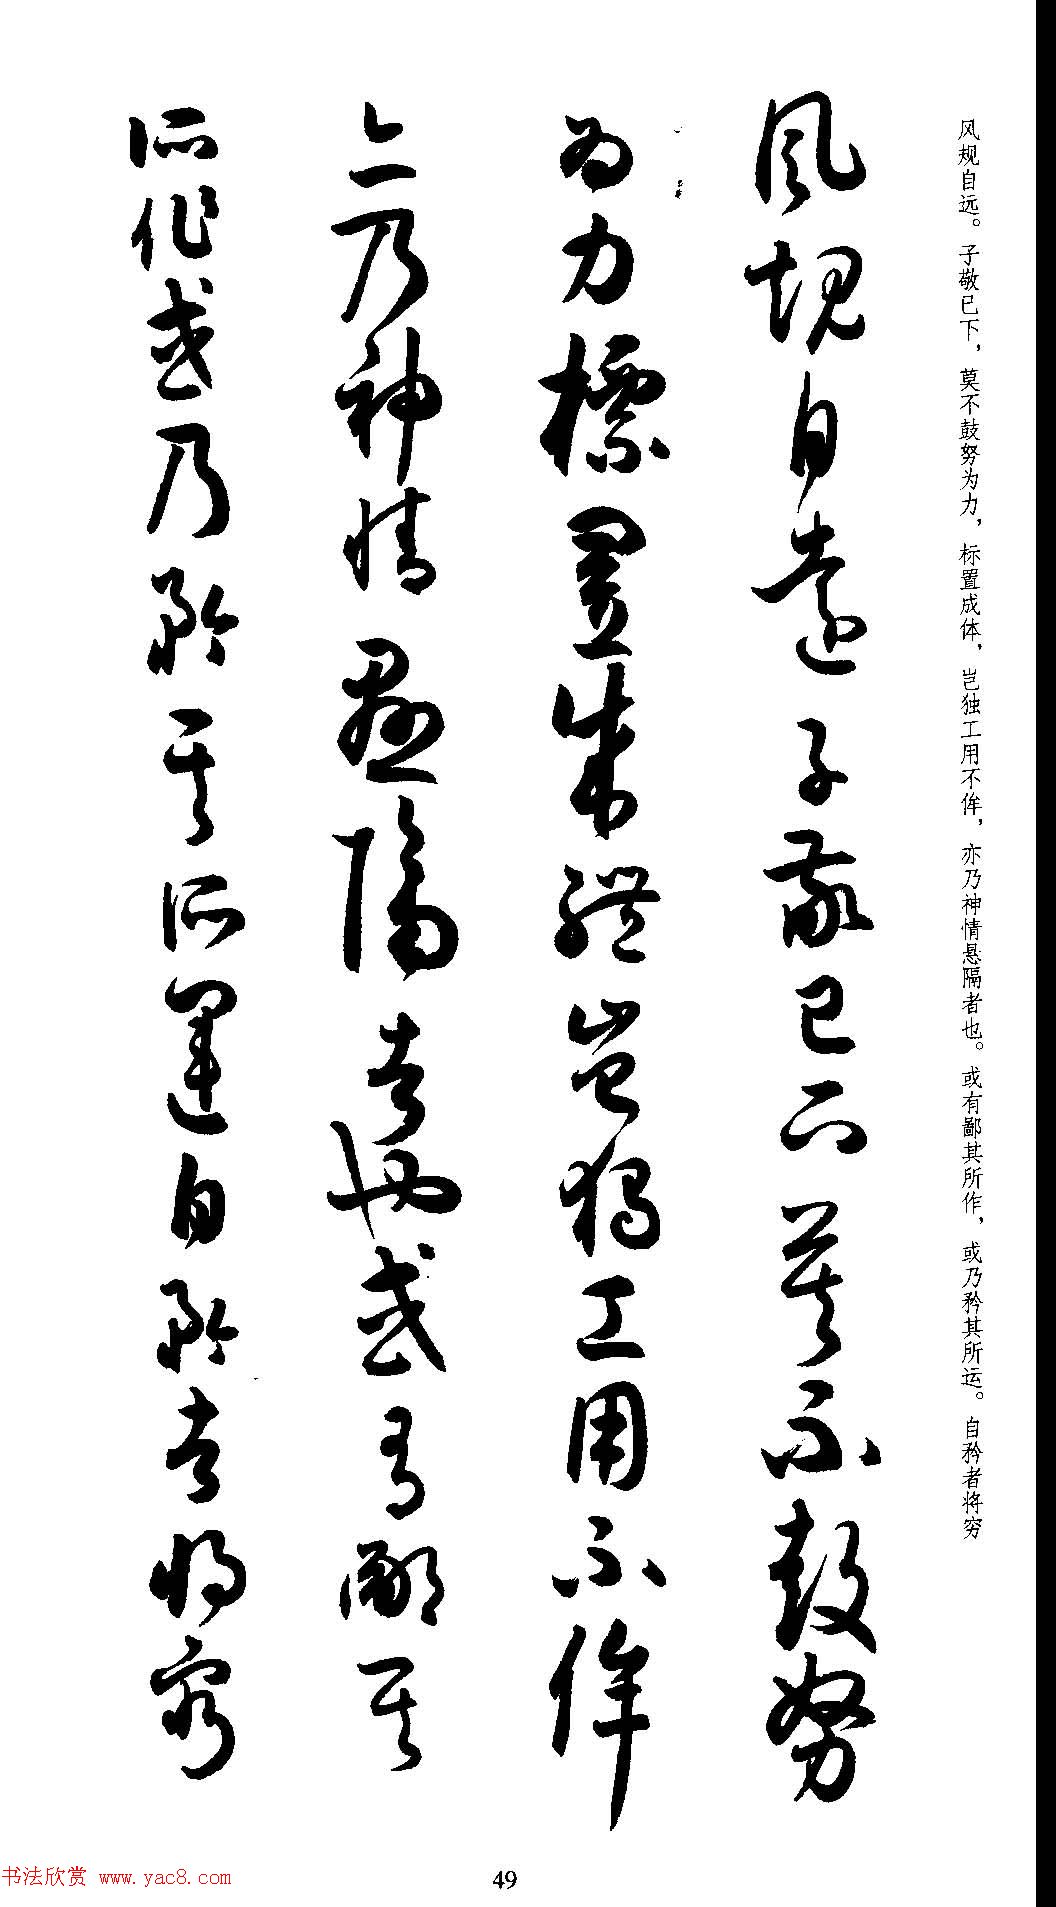 风规自远。子敬已下，莫不鼓努为力，标置成体，岂独工用不侔，亦乃神情悬隔者也。或有鄙其所作，或乃矜其所运。自矜者将穷
風規自遠子敬已下莫不鼓努
為力標置成體豈獨工用不侔
亦乃神情懸隔者也或有鄙其
所作或乃矜其所運自矜者將窮
书法欣赏 www.yac8.com
49